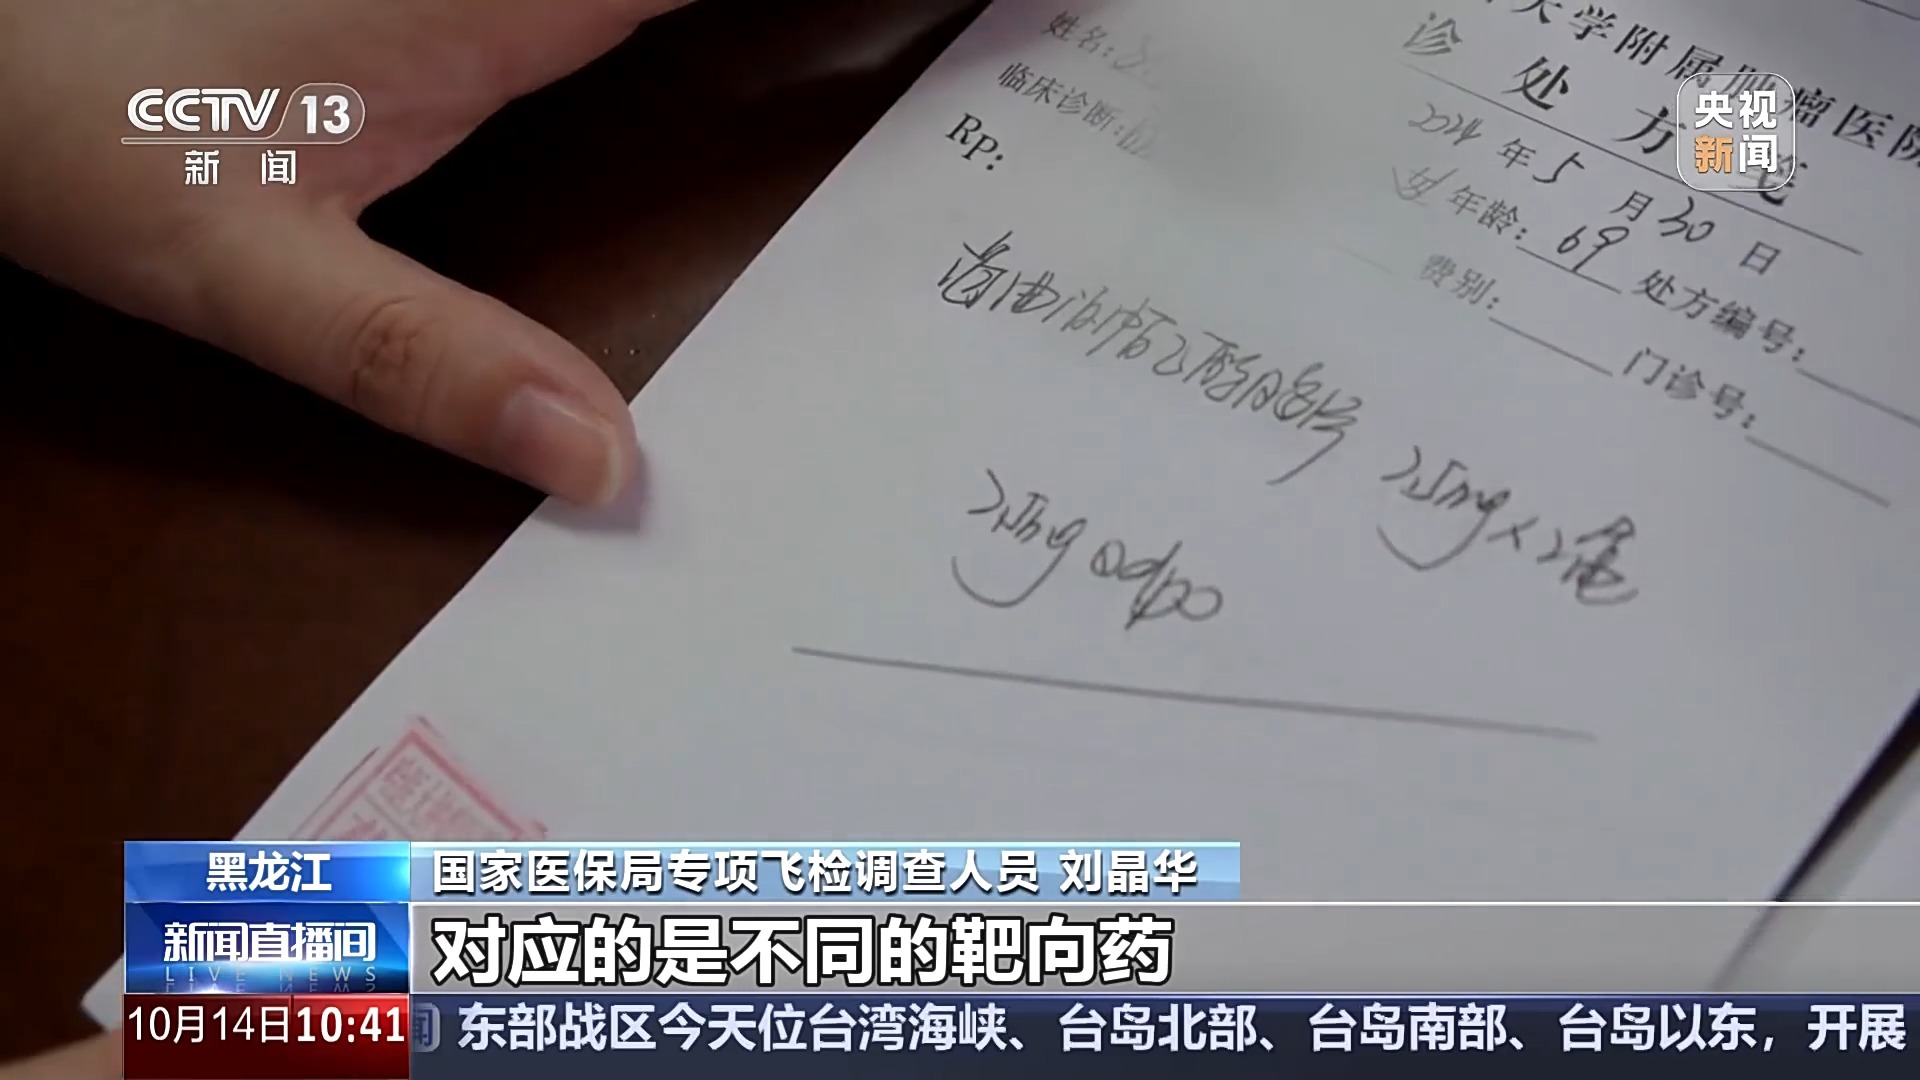 CCTV 13
新闻
央视
新闻
大学附属肿瘤医院
诊处方笺
2024年5月30日
姓名:
女 年龄: 69 处方编号:
临床诊断:
费别: 门诊号:
Rp:
2.5mg qd po
黑龙江
国家医保局专项飞检调查人员 刘晶华
新闻直播间
LIVE NEWS
对应的是不同的靶向药
10月14日10:41
东部战区今天位台湾海峡、台岛北部、台岛南部、台岛以东，开展